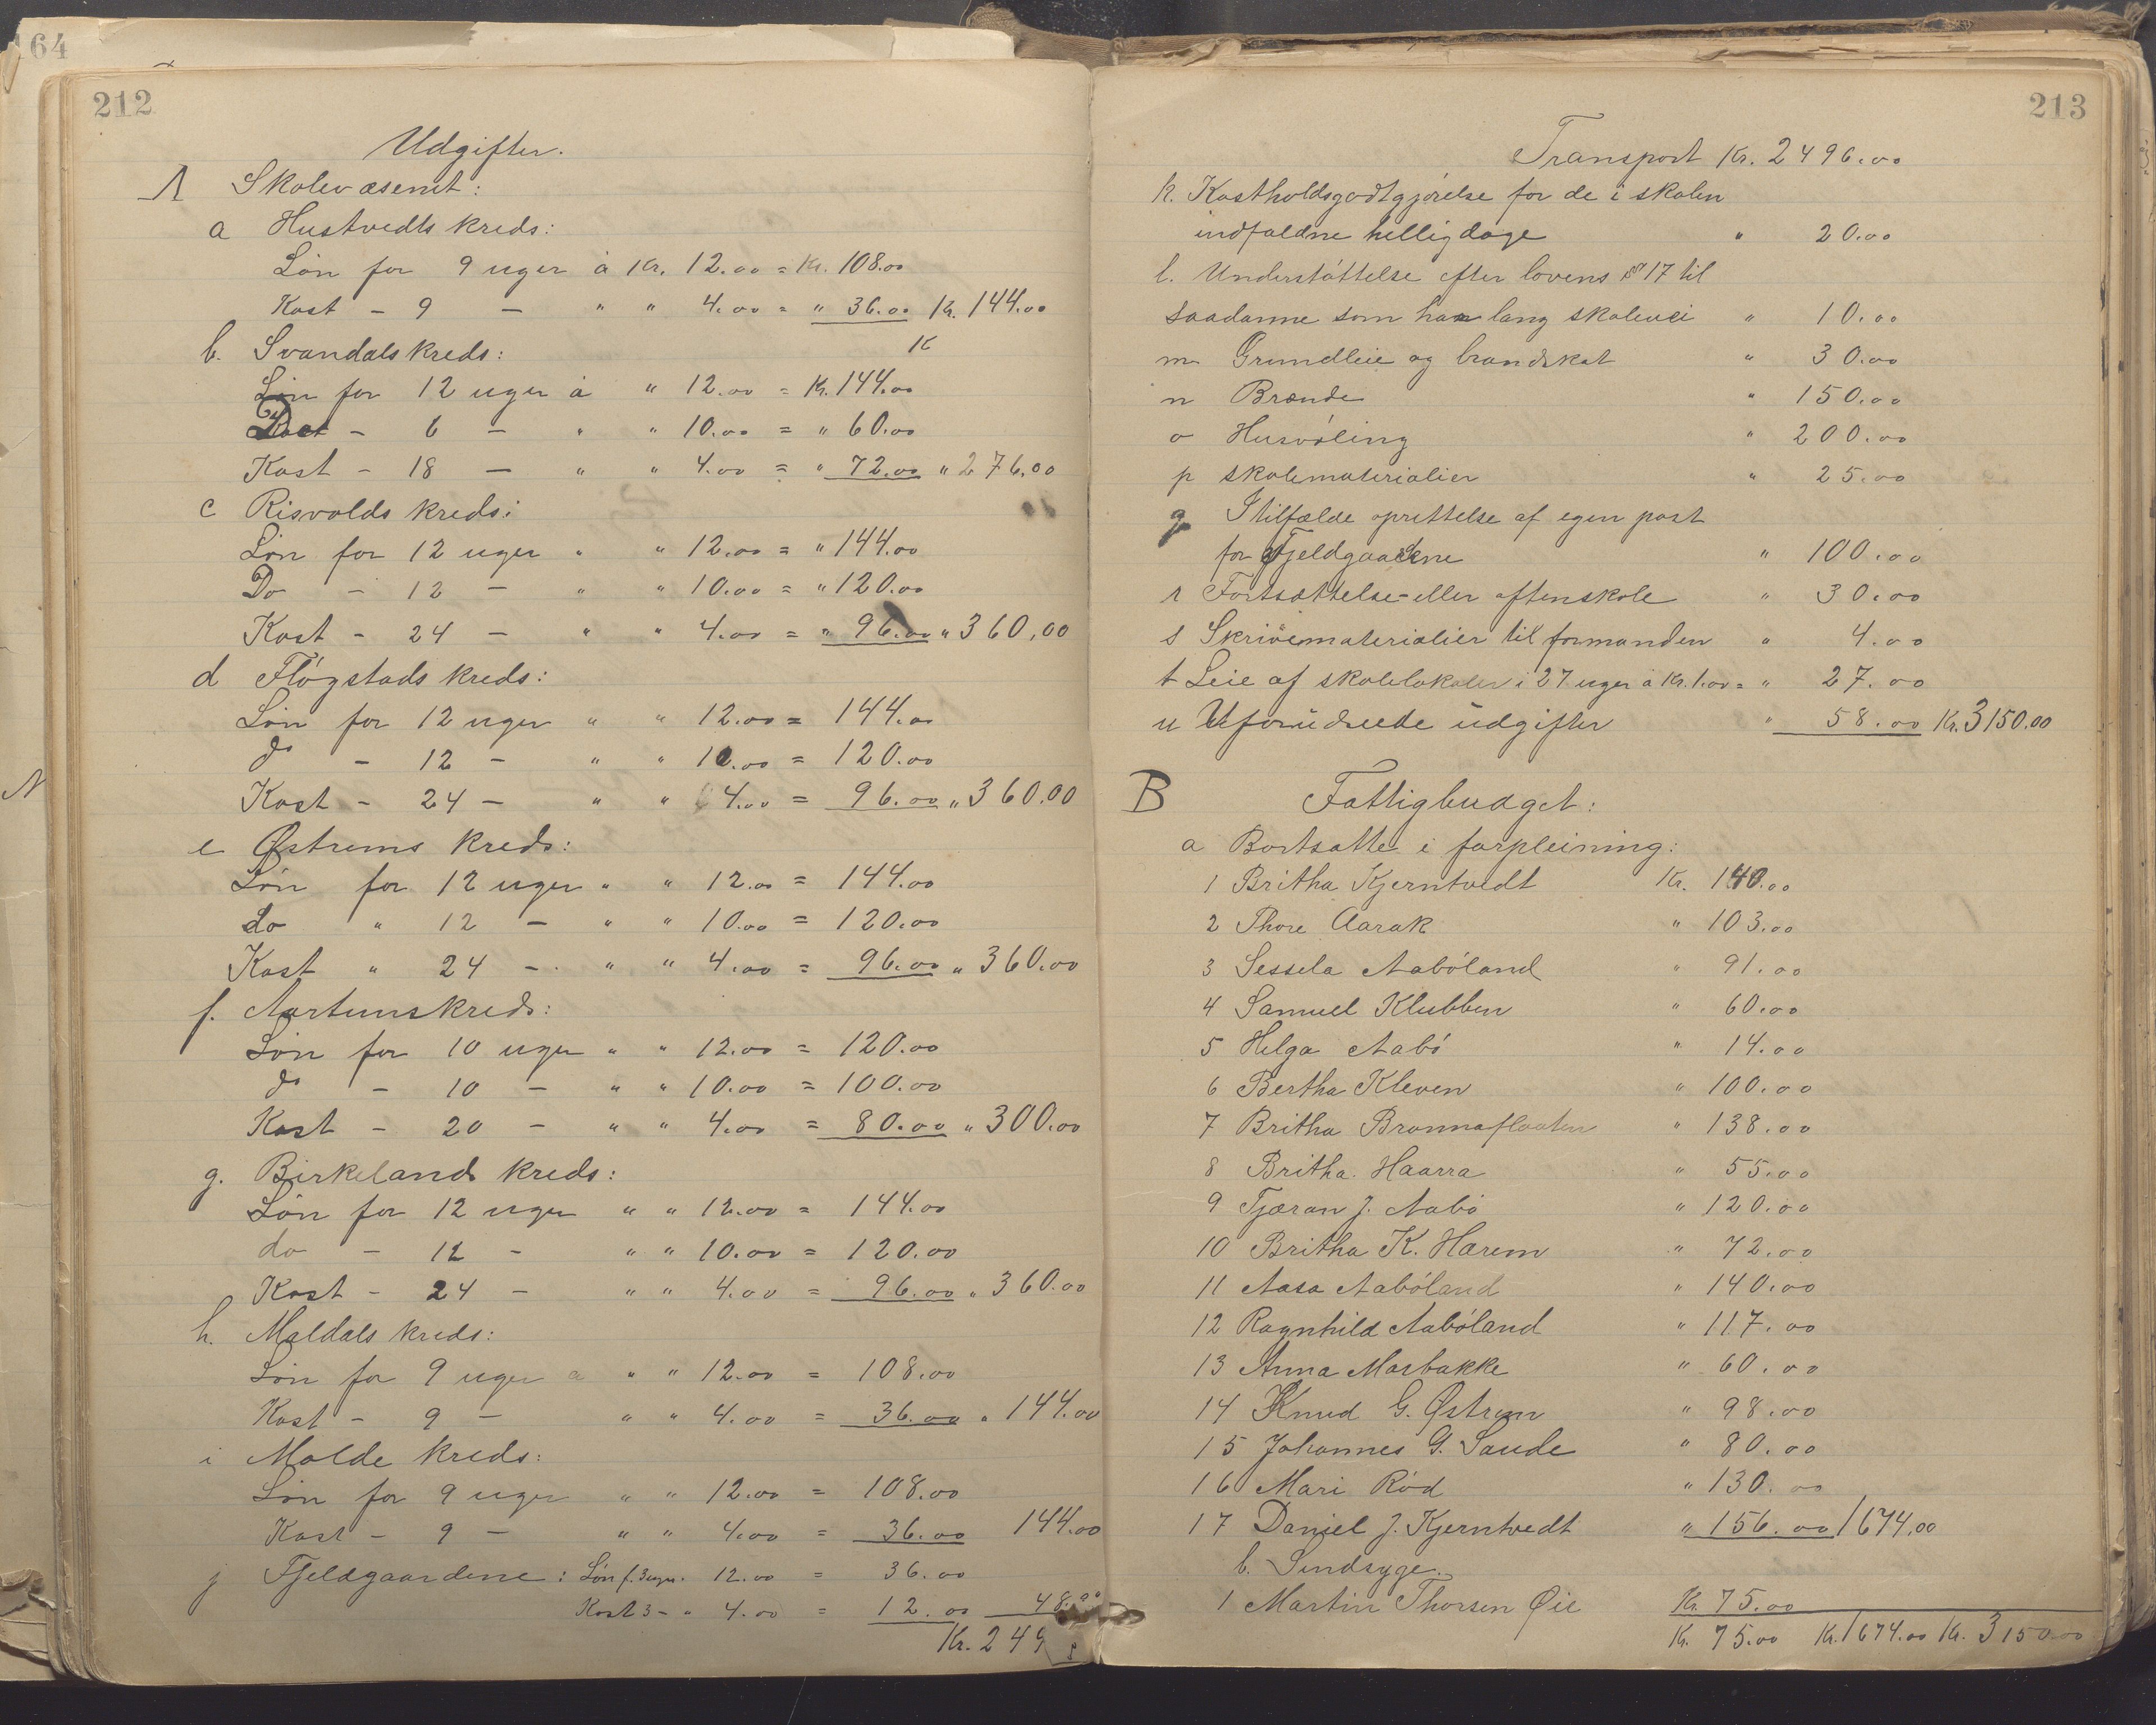 64
212
Udgifter.
A Skolevæsenet:
a Hustvedts kreds:
Løn for 9 uger à Kr. 12.00 = Kr. 108.00
Kost - 9 - " " 4.00 = " 36.00 Kr. 144.00
b. Svandals kreds: K
Løn for 12 uger à " 12.00 = Kr. 144.00
Do - 6 - " " 10.00 = " 60.00
Kost - 18 - " " 4.00 = " 72.00 " 276.00
c Risvolds kreds:
Løn for 12 uger " " 12.00 = " 144.00
Do - 12 - " " 10.00 = " 120.00
Kost - 24 - " " 4.00 = " 96.00 " 360.00
d Fløgstads kreds:
Løn for 12 uger " " 12.00 = 144.00
do - 12 - " " 10.00 = 120.00
Kost - 24 - " " 4.00 = 96.00 " 360.00
e Østrems kreds:
Løn for 12 uger " " 12.00 = 144.00
do " 12 - " " 10.00 = 120.00
Kost " 24 - " " 4.00 = 96.00 " 360.00
f. Aartunskreds:
Løn for 10 uger " " 12.00 = 120.00
do - 10 - " " 10.00 = 100.00
Kost - 20 - " " 4.00 = 80.00 " 300.00
g. Birkelands kreds:
Løn for 12 uger " " 12.00 = 144.00
do - 12 - " " 10.00 = 120.00
Kost - 24 - " " 4.00 = 96.00 " 360.00
h. Maldals kreds:
Løn for 9 uger a " " 12.00 = 108.00
Kost - 9 - " " 4.00 = 36.00 " 144.00
i Molde kreds:
Løn for 9 uger " " 12.00 = 108.00
Kost - 9 - " " 4.00 = 36.00 144.00
j Fjeldgaardene: Løn f. 3 uger. 12.00 = 36.00
Kost 3 - " 4.00 = 12.00 48.00
Kr. 249
213
Transport Kr. 2496.00
k. Kostholdsgodtgjørelse for de i skolen
indfaldne helligdage " 20.00
l. Understøttelse efter lovens § 17 til
saadanne som har lang skolevei " 10.00
m Grundleie og brandskat " 30.00
n Brænde " 150.00
o Husvøling " 200.00
p skolematerialier " 25.00
q I tilfælde oprettelse af egen post
for Fjeldgaardene " 100.00
r Fortsættelse- eller aftenskole " 30.00
s Skrivematerialier til formanden " 4.00
t Leie af skolelokaler i 27 uger a Kr. 1.00 = " 27.00
u Uforudseede udgifter " 58.00 Kr. 3150.00
B Fattigbudget:
a Bortsatte i forpleining:
1 Britha Kjerntvedt Kr. 140.00
2 Thore Aarak " 103.00
3 Sessela Aabøland " 91.00
4 Samuel Klubben " 60.00
5 Helga Aabø " 14.00
6 Bertha Kleven " 100.00
7 Britha Brannafloaten " 138.00
8 Britha Haarra " 55.00
9 Tjæran J. Aabø " 120.00
10 Britha K. Harem " 72.00
11 Aasa Aabøland " 140.00
12 Ragnhild Aabøland " 117.00
13 Anna Marbakke " 60.00
14 Knud G. Østrem " 98.00
15 Johannes G. Saude " 80.00
16 Mari Rød " 130.00
17 Daniel J. Kjerntvedt " 156.00 1674.00
b. Sindsyge.
1 Martin Thorsen Øie Kr. 75.00
Kr. 75.00 Kr. 1674.00 Kr. 3150.00